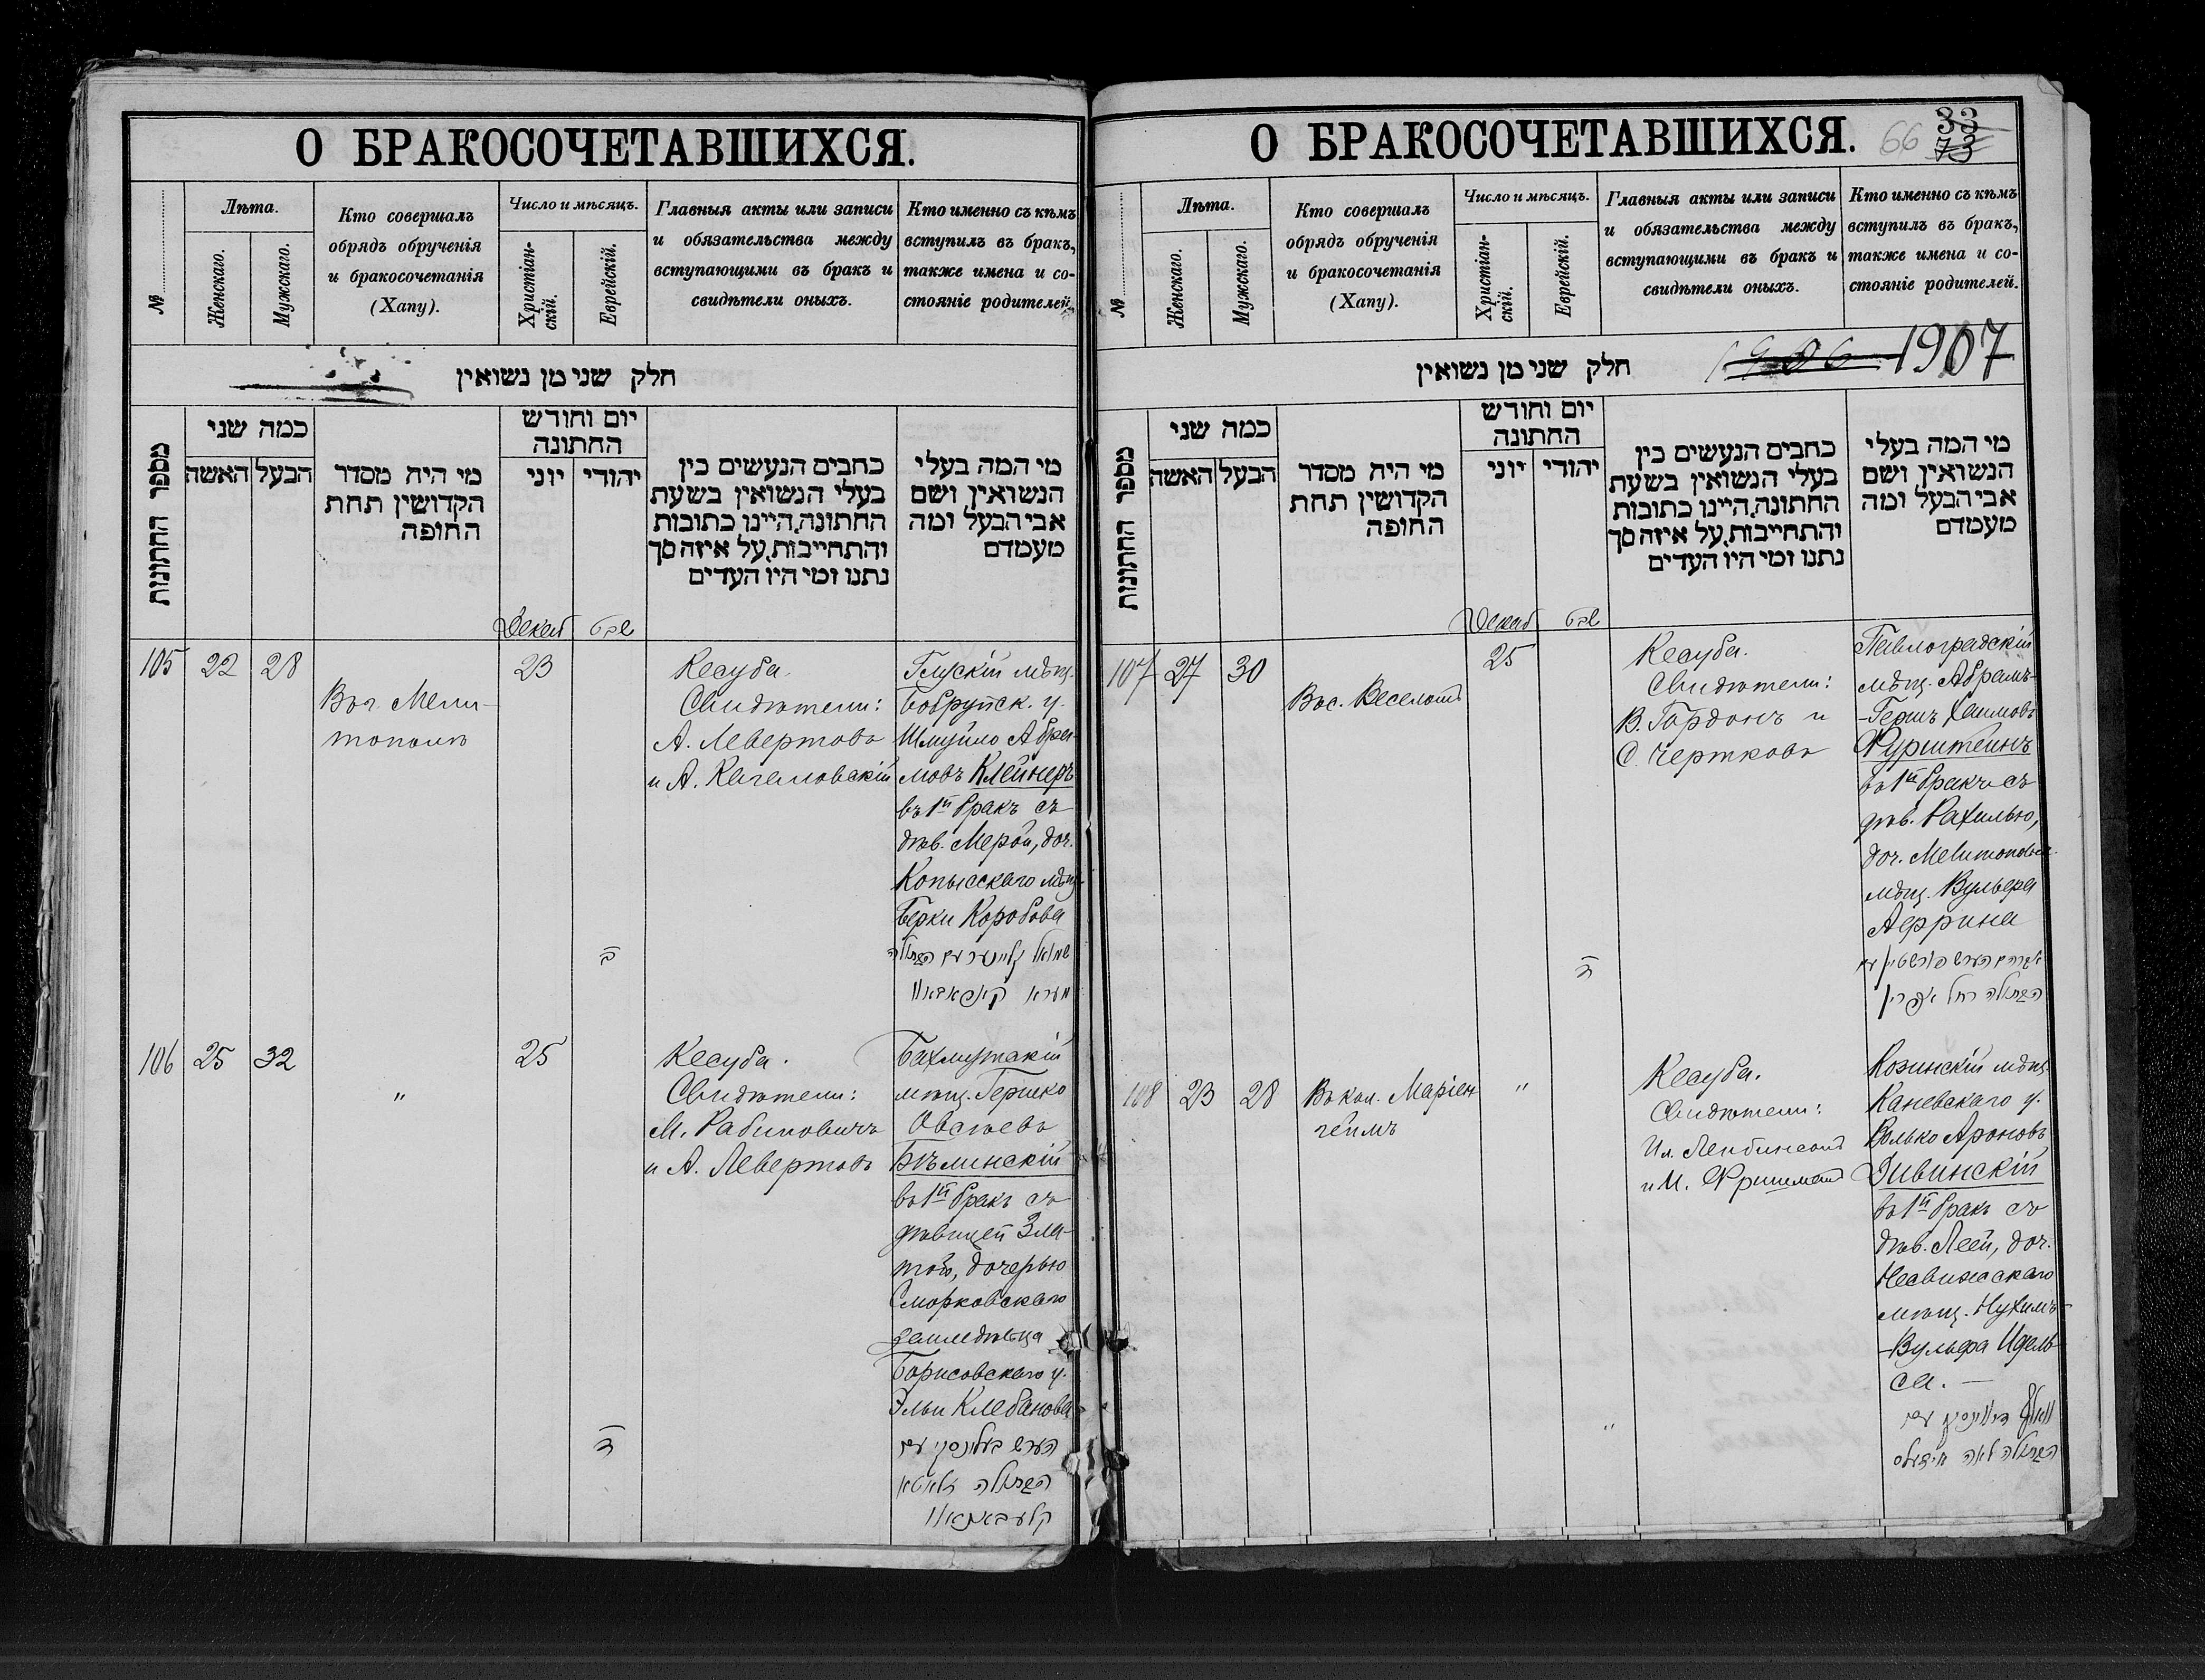 О БРАКОСОЧЕТАВШИХСЯ.
№
Лѣта.
Женскаго.
Мужскаго.
Кто совершалъ
обрядъ обрученія
и бракосочетанія
(Хапу).
Число и мѣсяцъ.
Христіан-
скій.
Еврейскій.
Главныя акты или записи
и обязательства между
вступающими въ бракъ и
свидѣтели оныхъ.
Кто именно съ кѣмъ
вступилъ въ бракъ,
также имена и со-
стояніе родителей.
חלק שני מן נשואין
מספר החתונות
כמה שני
האשה
הבעל
מי היה מסדר
הקדושין תחת
החופה
יום וחודש
החתונה
יוני
יהודי
כתבים הנעשים בין
בעלי הנשואין בשעת
החתונה, היינו כתובות
והתחייבות, על איזה סך
נתנו ומי היו העדים
מי המה בעלי
הנשואין ושם
אבי הבעל ומה
מעמדם
Декаб
טבת
105
22
28
Въ г. Мели-
тополѣ
23
Кесуба.
Свидѣтели:
А. Левертовъ
и А.
Глускій мѣщ.
Бобруйск. у.
Шмуйло Абра-
мовъ Клейнеръ
въ 1й бракъ съ
дѣв. Мерой, доч.
Копысскаго мѣщ.
Берки Коробова
עם הבתולה
106
25
32
"
25
Кесуба.
Свидѣтели:
М. Рабиновичъ
и А. Левертовъ
Бахмутскій
мѣщ. Гершко
Овсѣевъ
Бѣлинскій
въ 1й бракъ съ
дѣвицей Зла-
той, дочерью
Сморковскаго
земледѣльца
Борисовскаго у.
Эльи Клебанова
ה
הערש בעלינסקי עם
הבתולה זלאטא
קלעבאנאוו
О БРАКОСОЧЕТАВШИХСЯ.
66
33
73
№
Лѣта.
Женскаго.
Мужскаго.
Кто совершалъ
обрядъ обрученія
и бракосочетанія
(Хапу).
Число и мѣсяцъ.
Христіан-
скій.
Еврейскій.
Главныя акты или записи
и обязательства между
вступающими въ бракъ и
свидѣтели оныхъ.
Кто именно съ кѣмъ
вступилъ въ бракъ,
также имена и со-
стояніе родителей.
חלק שני מן נשואין
1906 1907
מספר החתונות
כמה שני
האשה
הבעל
מי היה מסדר
הקדושין תחת
החופה
יום וחודש
החתונה
יוני
יהודי
כתבים הנעשים בין
בעלי הנשואין בשעת
החתונה, היינו כתובות
והתחייבות, על איזה סך
נתנו ומי היו העדים
מי המה בעלי
הנשואין ושם
אבי הבעל ומה
מעמדם
Декаб
טבת
107
27
30
Въ с. Веселомъ
25
Кесуба.
Свидѣтели:
В. Гордонъ и
С. Чертковъ
Павлоградскій
мѣщ. Абрамъ-
-Гершъ Хаимовъ
Фурштейнъ
въ 1й бракъ съ
дѣв. Рахилью,
доч. Мелитопольск.
мѣщ. Вульфа
ה
אברהם הערש פורשטיין עם
הבתולה רחל
108
23
28
Въ кол. Маріен-
геймъ
"
Кесуба.
Свидѣтели:
и И. Фришманъ
Козинскій мѣщ.
Каневскаго у.
Волько Ароновъ
Дивинскій
въ 1й бракъ съ
дѣв. Леей, доч.
Несвижскаго
мѣщ. Нухимъ-
-Вульфа Идель-
са. —
"
וואלף דיווינסקי עם
הבתולה לאה אידעלס